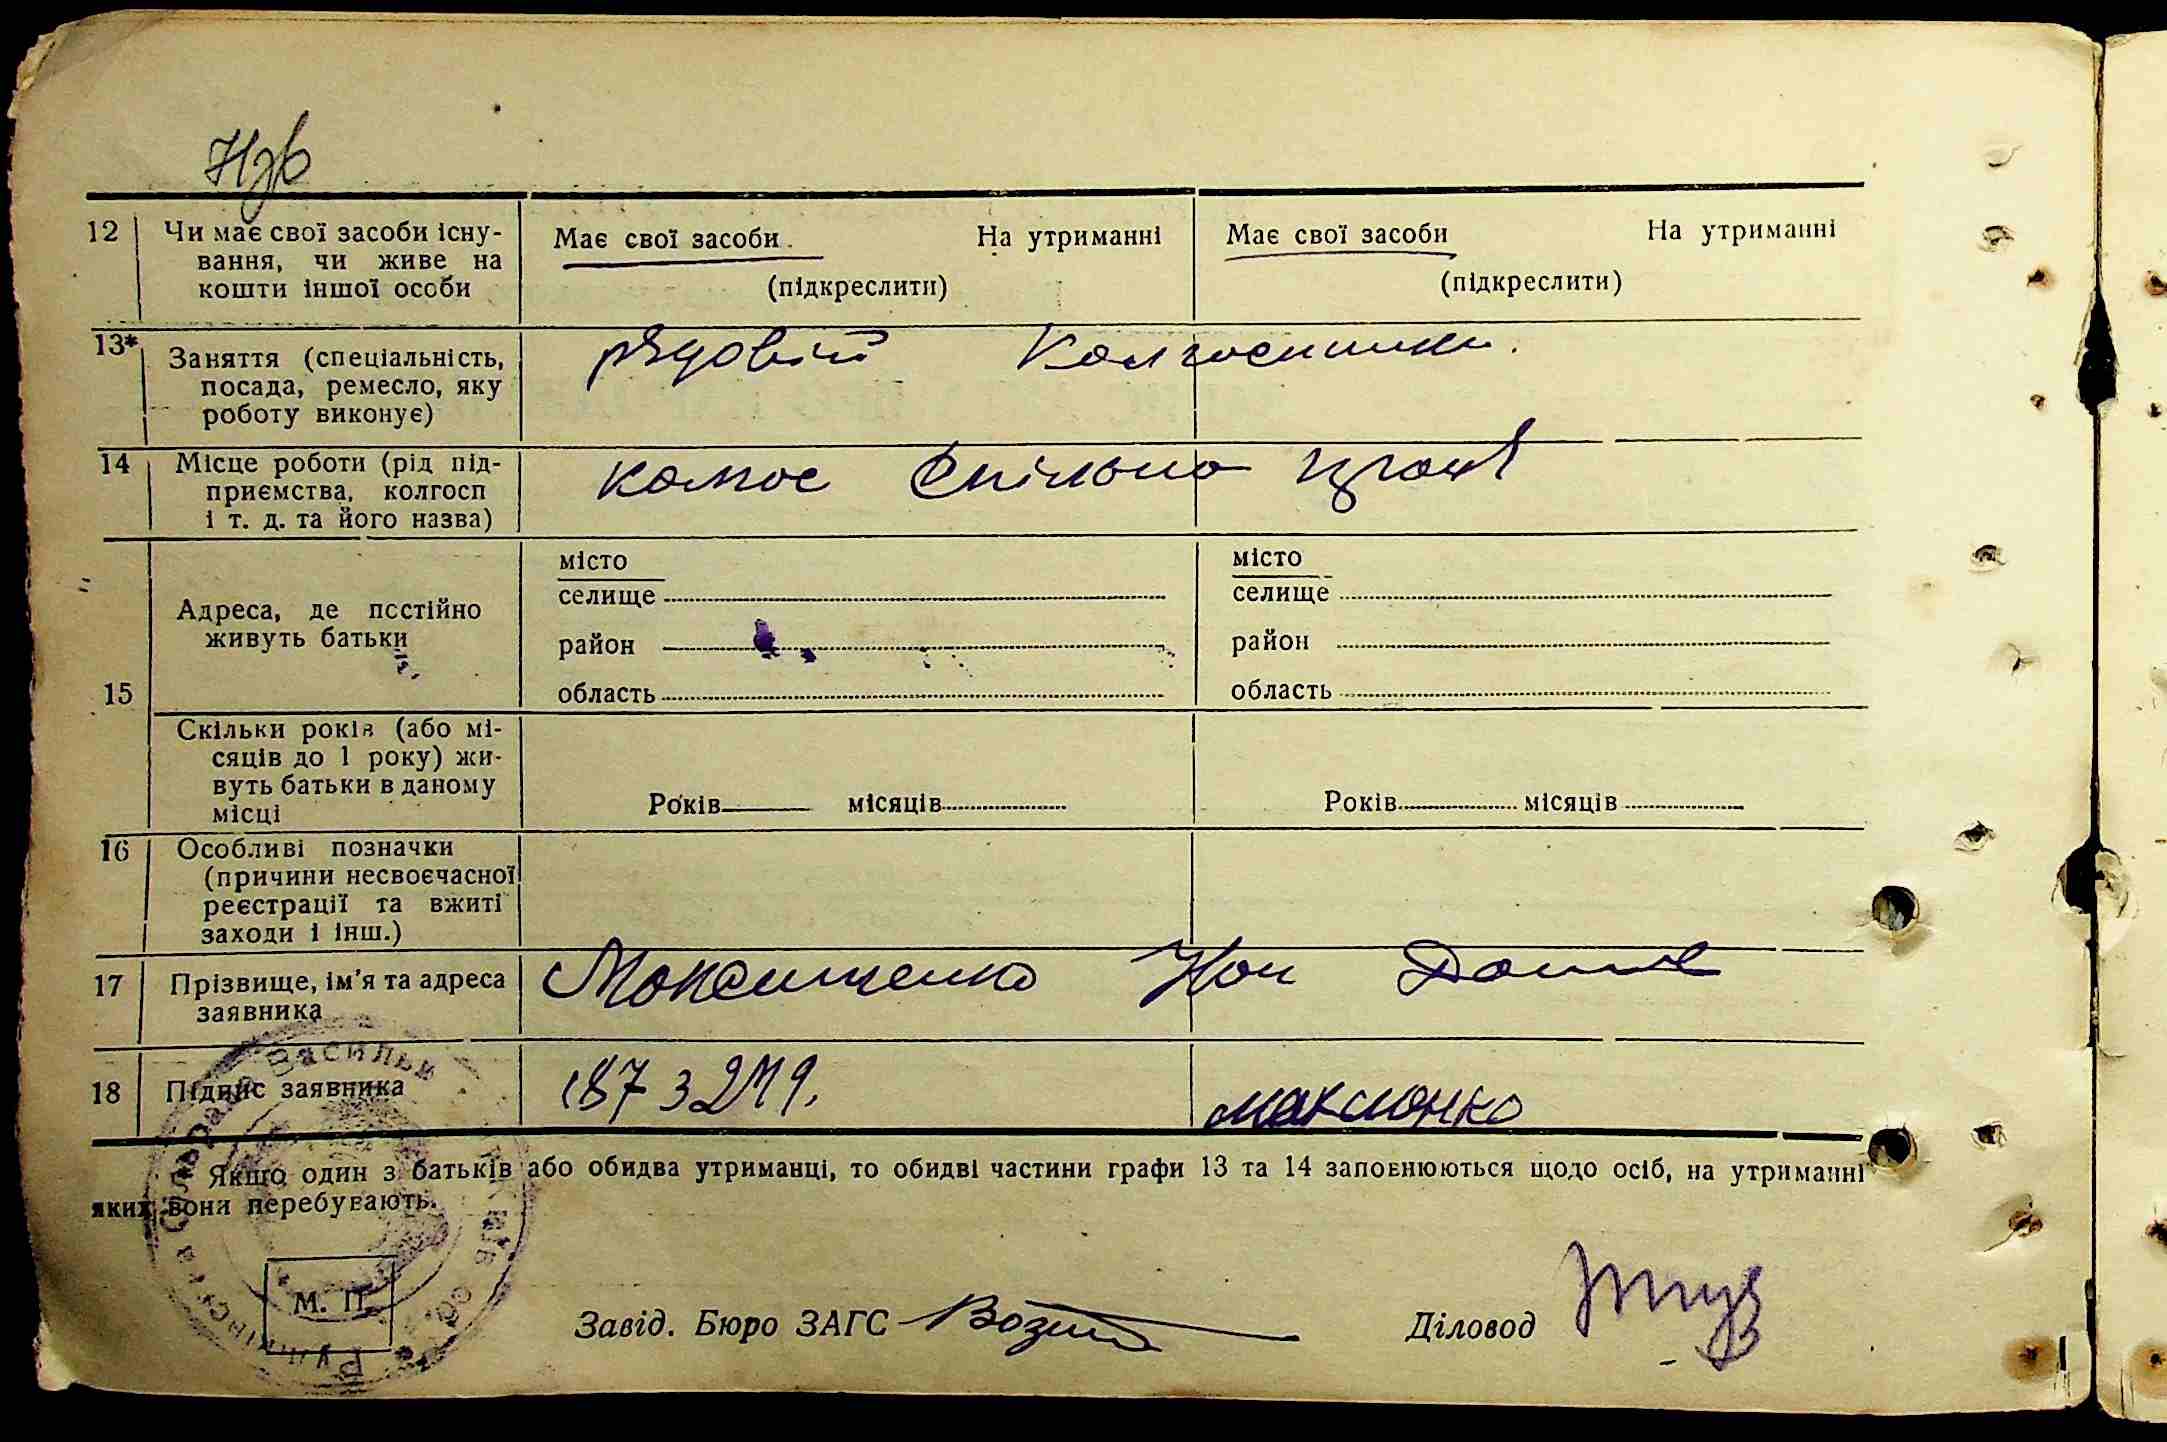 12 Чи має свої засоби існу-
вання, чи живе на
кошти іншої особи
Має свої засоби. На утриманні
(підкреслити)
Має свої засоби На утриманні
(підкреслити)
13* Заняття (спеціальність,
посада, ремесло, яку
роботу виконує)
рядовій Колгоспники.
14 Місце роботи (рід під-
приємства, колгосп
і т. д. та його назва)
Спільна праця
15 Адреса, де постійно
живуть батьки
місто
селище
район
область
місто
селище
район
область
Скільки років (або мі-
сяців до 1 року) жи-
вуть батьки в даному
місці
Років місяців
Років місяців
16 Особливі позначки
(причини несвоєчасної
реєстрації та вжиті
заходи і інш.)
17 Прізвище, ім'я та адреса
заявника
Максименко
18 Підпис заявника
Якщо один з батьків або обидва утриманці, то обидві частини графи 13 та 14 заповнюються щодо осіб, на утриманні
яких вони перебувають.
М. П.
Завід. Бюро ЗАГС
Діловод